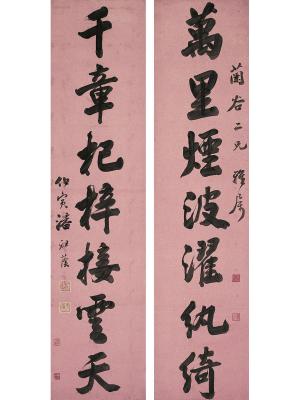 萬里煙波濯紈綺
蘭谷二兄雅屬
千章杞梓接雲天
仲寅潘祖蔭